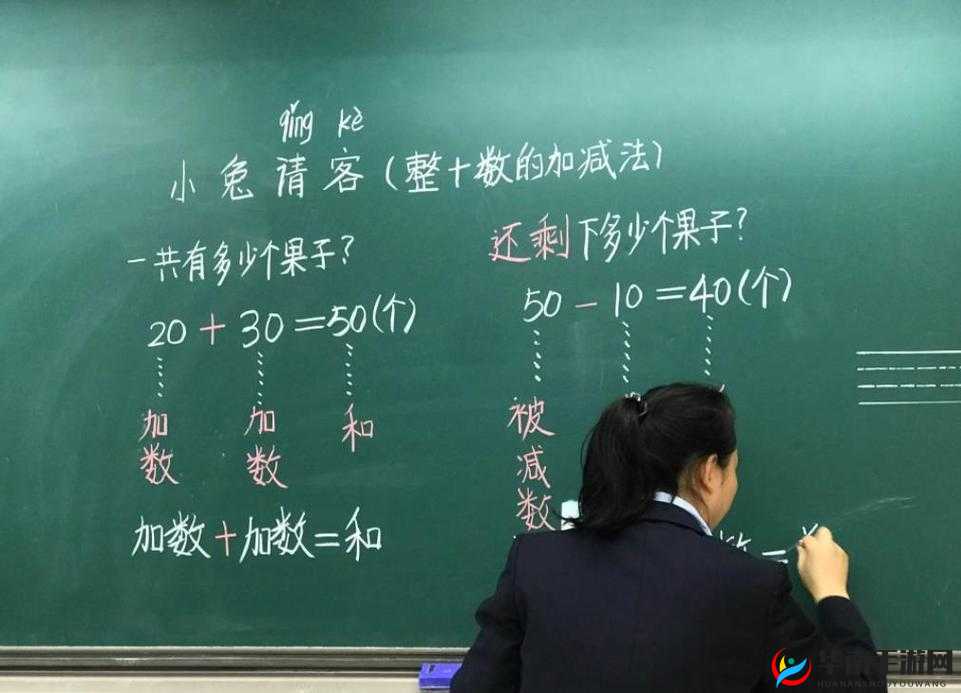 qǐng kè
小兔请客(整十数的加减法)
一共有多少个果子?
20+30=50(个)
加数 加数 和
加数+加数=和
还剩下多少个果子?
50-10=40(个)
被减数
数=
手游网
HUANANSHOUYOUWANG